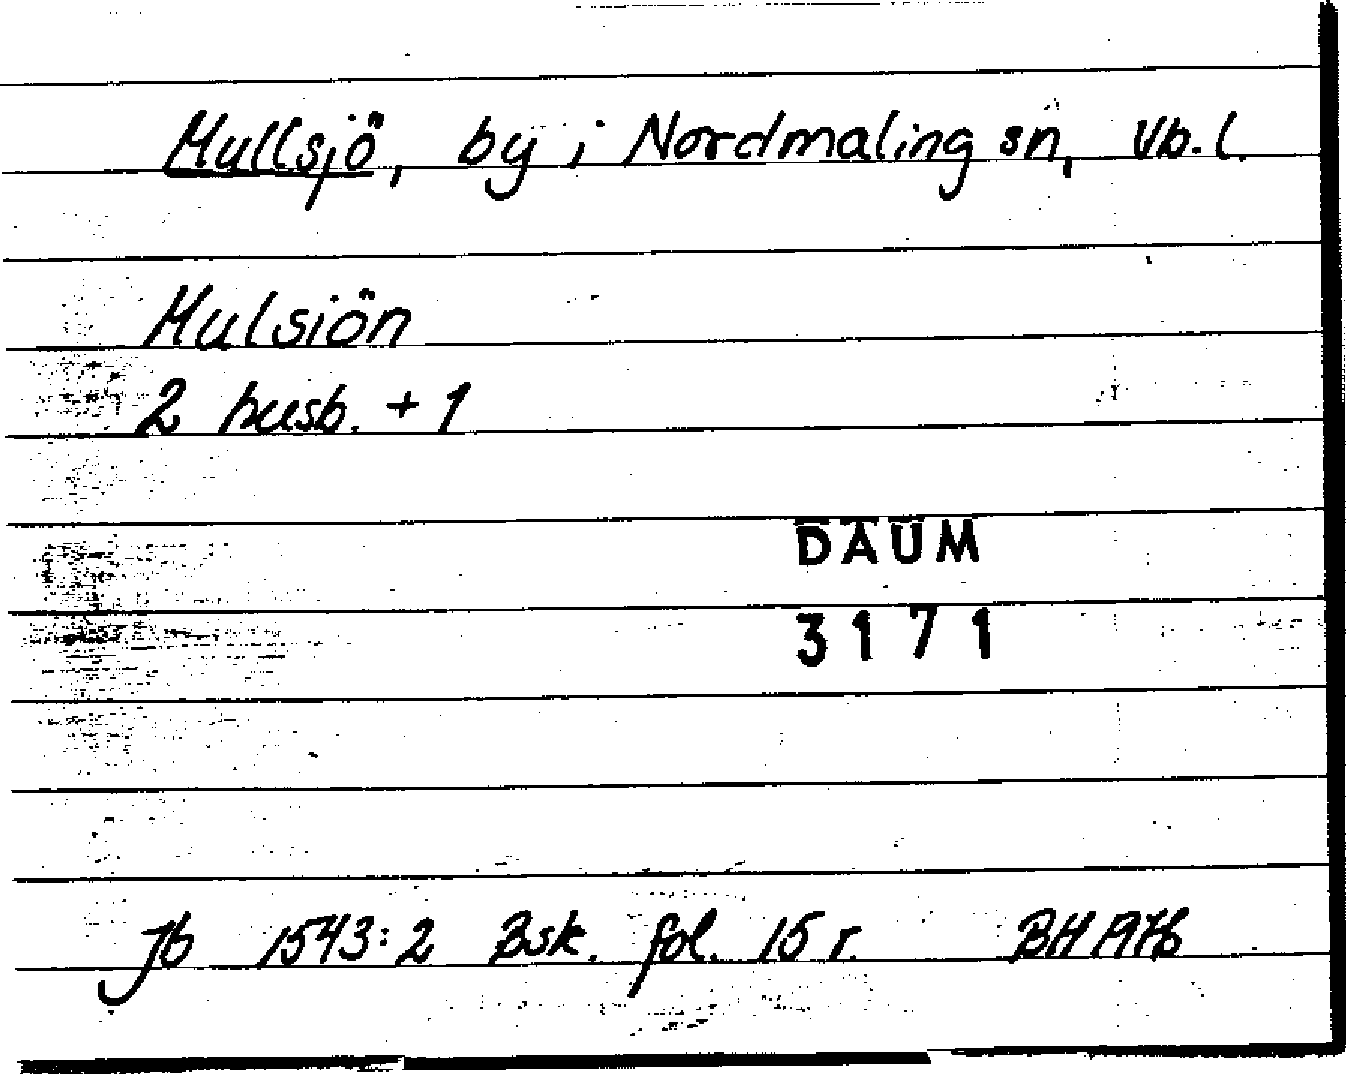 Mullsjö, by i Nordmaling sn, Vb.l.
Mulsiön
2 husb. + 1
DAUM
3171
Jb 1543:2 Bsk. fol. 15 r. BH